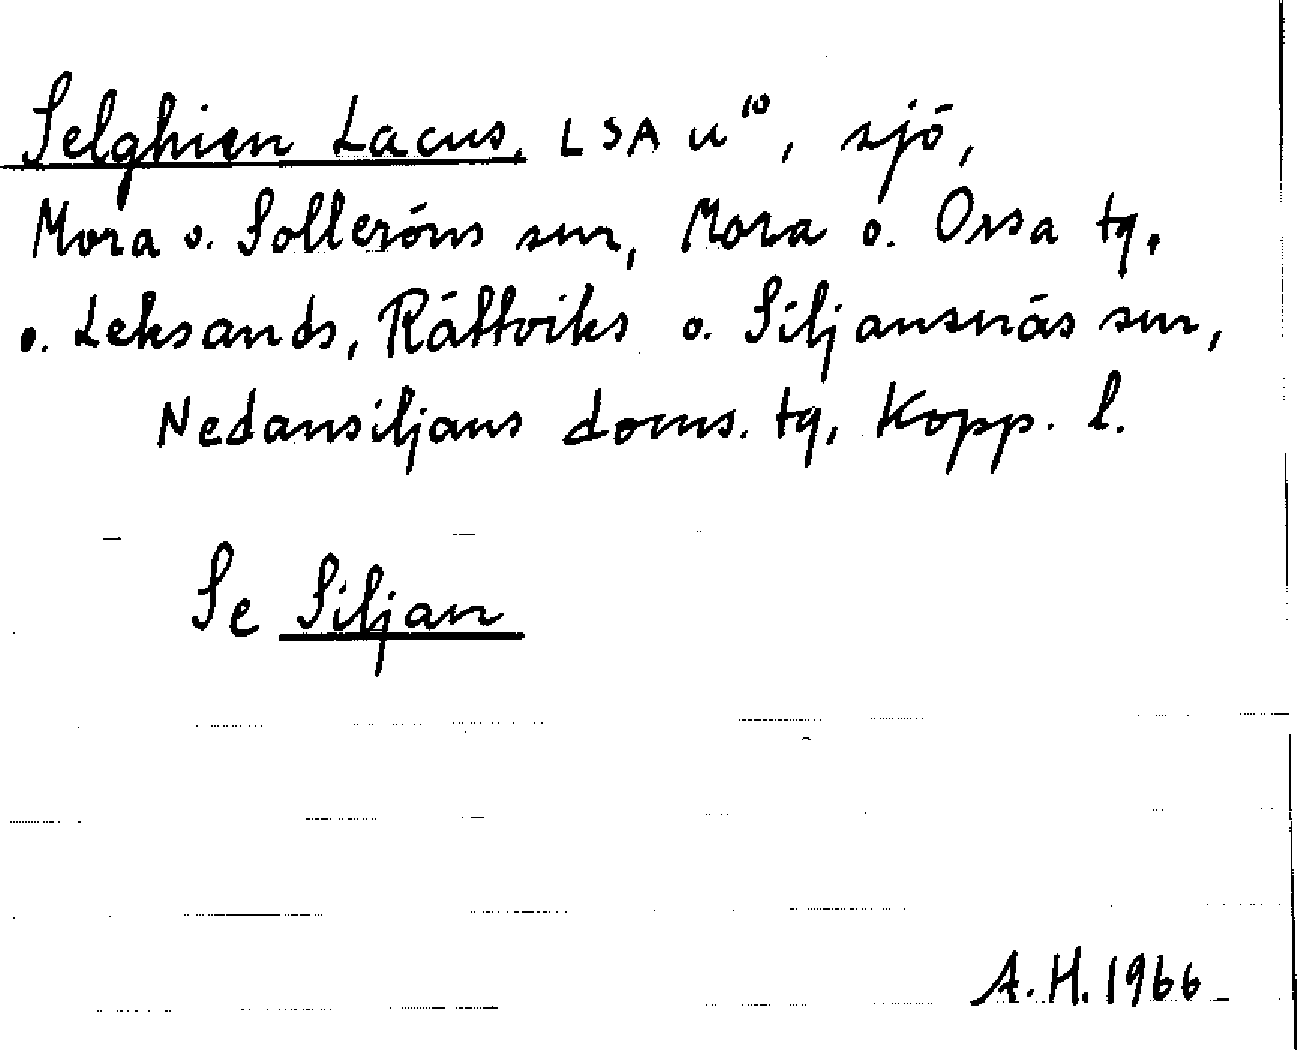 Selghien Lacus, LSA u¹⁰, sjö,
Mora o. Solleröns snr, Mora o. Orsa tg.
o. Leksands, Rättviks o. Siljansnäs snr,
Nedansiljans doms. tg, Kopp. l.
Se Siljan
A.H. 1966